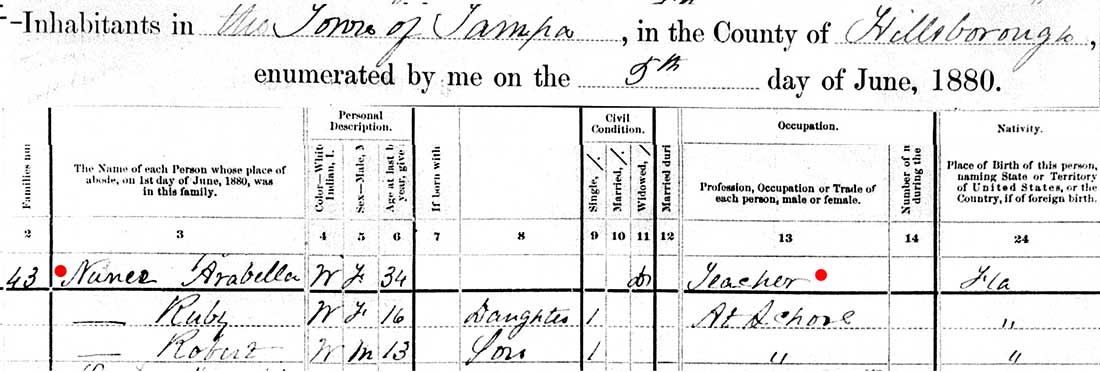 -Inhabitants in the Town of Tampa, in the County of Hillsborough,
enumerated by me on the 5th day of June, 1880.
Families num
The Name of each Person whose place of
abode, on 1st day of June, 1880, was
in this family.
Personal
Description.
Color—White
Indian, I.
Sex—Male, M
Age at last b
year, give
If born with
Civil
Condition.
Single, /.
Married, /.
Widowed, /
Married duri
Occupation.
Profession, Occupation or Trade of
each person, male or female.
Number of n
during the
Nativity.
Place of Birth of this person,
naming State or Territory
of United States, or the
Country, if of foreign birth.
2 3 4 5 6 7 8 9 10 11 12 13 14 24
43 Nunez Arabella W F 34 D Teacher Fla
— Ruby W F 16 Daughter 1 At School "
— Robert W M 13 Son 1 " "